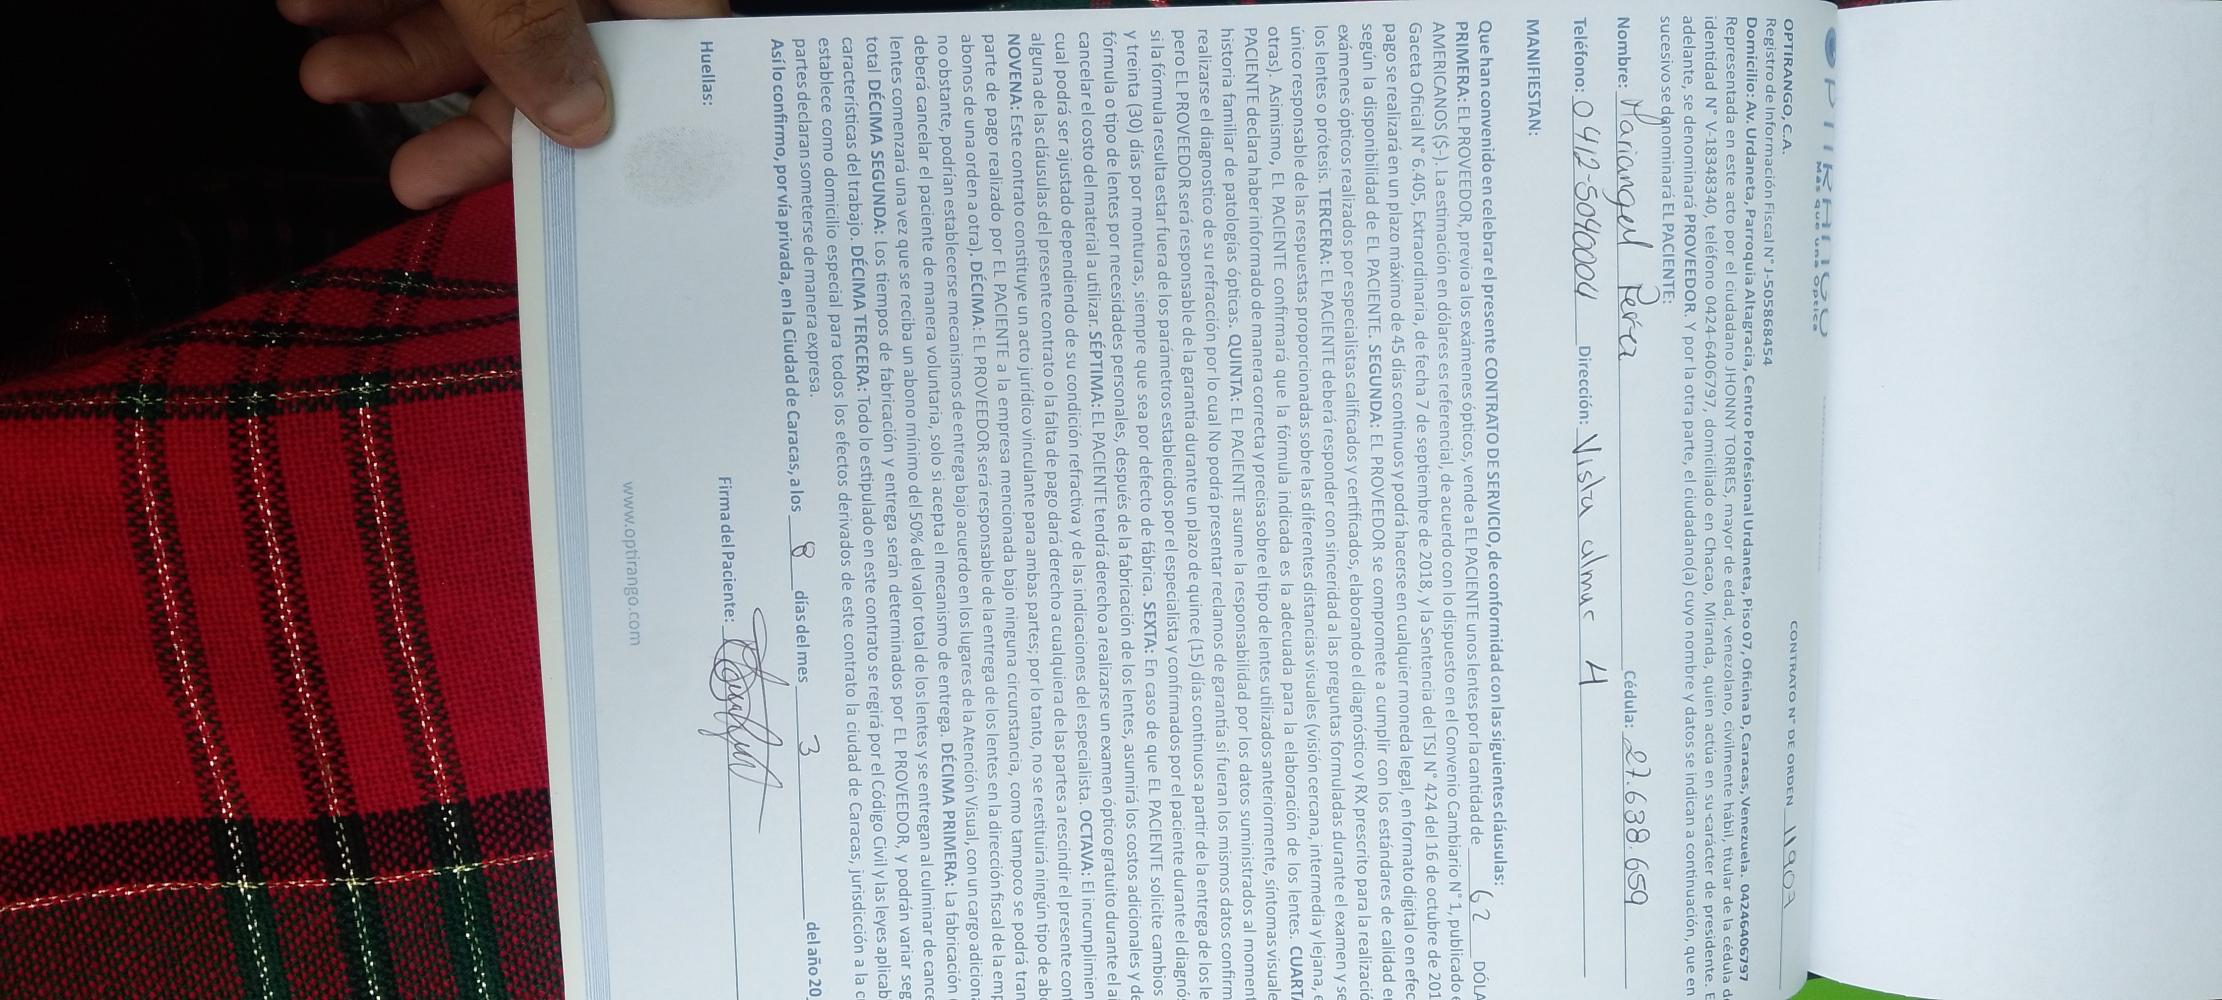 OPTIRANGO
Más que una Óptica
OPTIRANGO, C.A.
CONTRATO N° DE ORDEN 11907
Registro de Información Fiscal N° J-505868454
Domicilio: Av. Urdaneta, Parroquia Altagracia, Centro Profesional Urdaneta, Piso 07, Oficina D, Caracas, Venezuela. 04246406797
Representada en este acto por el ciudadano JHONNY TORRES, mayor de edad, venezolano, civilmente hábil, titular de la cédula
identidad N° V-18348340, teléfono 0424-6406797, domiciliado en Chacao, Miranda, quien actúa en su carácter de presidente.
adelante, se denominará PROVEEDOR. Y por la otra parte, el ciudadano(a) cuyo nombre y datos se indican a continuación, que en
sucesivo se denominará EL PACIENTE:
Nombre: Mariangel Pérez Cédula: 27.638.659
Teléfono: 0412-5040004 Dirección: Vista alnuc 4
MANIFIESTAN:
Que han convenido en celebrar el presente CONTRATO DE SERVICIO, de conformidad con las siguientes cláusulas:
PRIMERA: EL PROVEEDOR, previo a los exámenes ópticos, vende a EL PACIENTE unos lentes por la cantidad de 62 DÓLA
AMERICANOS ($-). La estimación en dólares es referencial, de acuerdo con lo dispuesto en el Convenio Cambiario N° 1, publicado
Gaceta Oficial N° 6.405, Extraordinaria, de fecha 7 de septiembre de 2018, y la Sentencia del TSJ N° 424 del 16 de octubre de 201
pago se realizará en un plazo máximo de 45 días continuos y podrá hacerse en cualquier moneda legal, en formato digital o en efec
según la disponibilidad de EL PACIENTE. SEGUNDA: EL PROVEEDOR se compromete a cumplir con los estándares de calidad e
exámenes ópticos realizados por especialistas calificados y certificados, elaborando el diagnóstico y RX prescrito para la realizació
los lentes o prótesis. TERCERA: EL PACIENTE deberá responder con sinceridad a las preguntas formuladas durante el examen y se
único responsable de las respuestas proporcionadas sobre las diferentes distancias visuales (visión cercana, intermedia y lejana,
otras). Asimismo, EL PACIENTE confirmará que la fórmula indicada es la adecuada para la elaboración de los lentes. CUART
PACIENTE declara haber informado de manera correcta y precisa sobre el tipo de lentes utilizados anteriormente, síntomas visuale
historia familiar de patologías ópticas. QUINTA: EL PACIENTE asume la responsabilidad por los datos suministrados al moment
realizarse el diagnostico de su refracción por lo cual No podrá presentar reclamos de garantía si fueran los mismos datos confirm
pero EL PROVEEDOR será responsable de la garantía durante un plazo de quince (15) días continuos a partir de la entrega de los le
si la fórmula resulta estar fuera de los parámetros establecidos por el especialista y confirmados por el paciente durante el diagnó
y treinta (30) días por monturas, siempre que sea por defecto de fábrica. SEXTA: En caso de que EL PACIENTE solicite cambios
fórmula o tipo de lentes por necesidades personales, después de la fabricación de los lentes, asumirá los costos adicionales y de
cancelar el costo del material a utilizar. SÉPTIMA: EL PACIENTE tendrá derecho a realizarse un examen óptico gratuito durante el a
cual podrá ser ajustado dependiendo de su condición refractiva y de las indicaciones del especialista. OCTAVA: El incumplimien
alguna de las cláusulas del presente contrato o la falta de pago dará derecho a cualquiera de las partes a rescindir el presente con
NOVENA: Este contrato constituye un acto jurídico vinculante para ambas partes; por lo tanto, no se restituirá ningún tipo de abo
parte de pago realizado por EL PACIENTE a la empresa mencionada bajo ninguna circunstancia, como tampoco se podrá tran
abonos de una orden a otra). DÉCIMA: EL PROVEEDOR será responsable de la entrega de los lentes en la dirección fiscal de la emp
no obstante, podrían establecerse mecanismos de entrega bajo acuerdo en los lugares de la Atención Visual, con un cargo adicion
deberá cancelar el paciente de manera voluntaria, solo si acepta el mecanismo de entrega. DÉCIMA PRIMERA: La fabricación
lentes comenzará una vez que se reciba un abono mínimo del 50% del valor total de los lentes y se entregan al culminar de cance
total DÉCIMA SEGUNDA: Los tiempos de fabricación y entrega serán determinados por EL PROVEEDOR, y podrán variar seg
características del trabajo. DÉCIMA TERCERA: Todo lo estipulado en este contrato se regirá por el Código Civil y las leyes aplicab
establece como domicilio especial para todos los efectos derivados de este contrato la ciudad de Caracas, jurisdicción a la c
partes declaran someterse de manera expresa.
Así lo confirmo, por vía privada, en la Ciudad de Caracas, a los 8 días del mes 3 del año 20
Firma del Paciente:
Huellas:
www.optirango.com